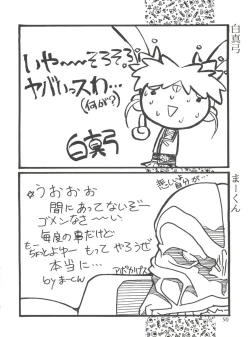 白真弓
いや〜〜そろそろ
ヤバいっスわ…
(何が?)
白真弓
まーくん
悪いよ自分が…
※うおおお
間にあってないぞー
ゴメンなさーい
毎度の事だけど
もーちょとよゆー もって やろうぜ
本当に…
by まーくん
50